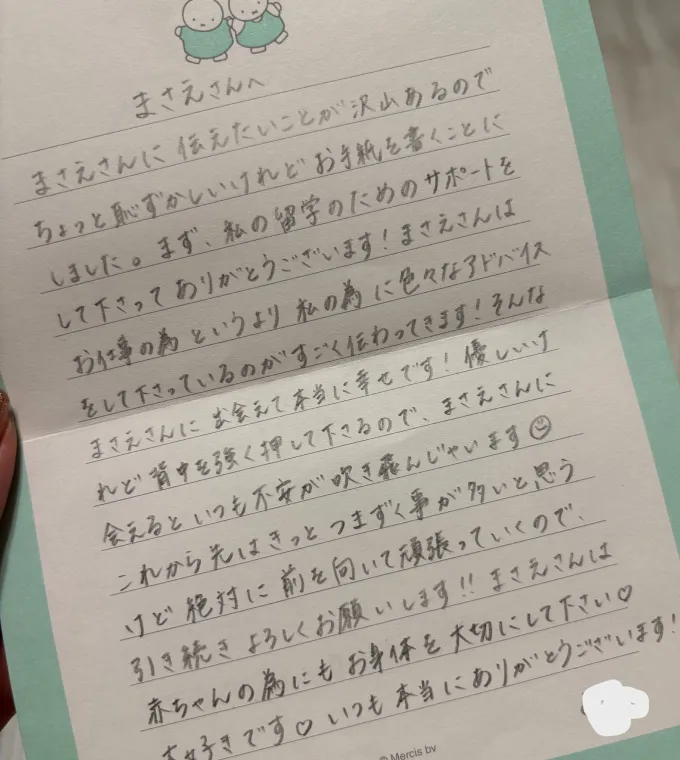 まさえさんへ
まさえさんに 伝えたいことが沢山あるので
ちょっと恥ずかしいけれど お手紙を書くことに
しました。まず、私の留学のためのサポートを
して下さって ありがとうございます！まさえさんは
お仕事の為 というより 私の為に色々なアドバイス
をして下さっているのがすごく伝わってきます！そんな
まさえさんに 出会えて本当に幸せです！優しいけ
れど 背中を強く押して下さるので、まさえさんに
会えると いつも不安が吹き飛んじゃいます☺
これから先は きっと つまずく事が多いと思う
けど 絶対に 前を向いて頑張っていくので、
引き続き よろしくお願いします!! まさえさんは
赤ちゃんの為にも お身体を 大切にして下さい♡
大好きです♡ いつも 本当にありがとうございます！
© Mercis bv